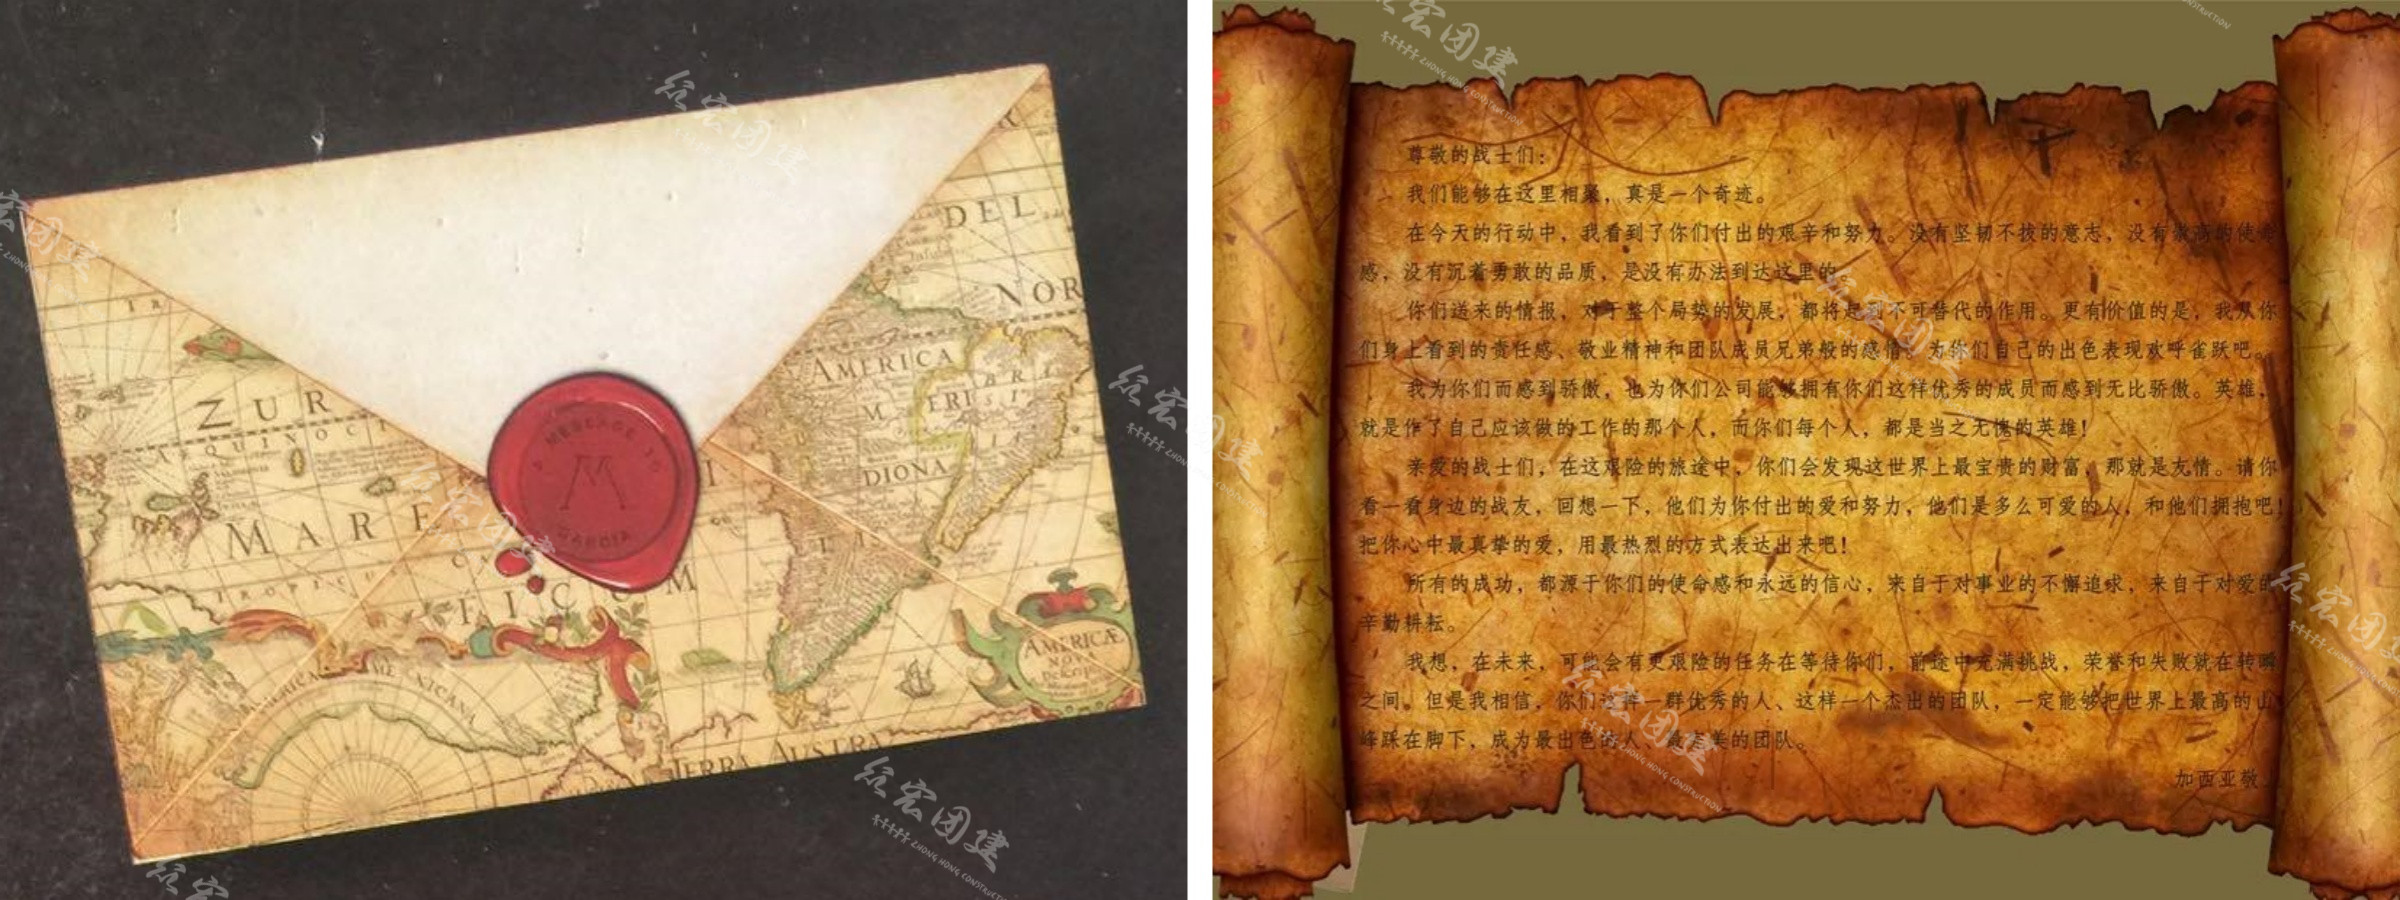 DEL
NOR
AMERICA
ZUR
M
ERI
BRE
SI
DIONA
MARE
A MESSAGE TO
M
GARCIA
TROPICUS
FICUM
AMERICÆ
NOV
Descrip
TERRA AUSTRA
尊敬的战士们：
我们能够在这里相聚，真是一个奇迹。
在今天的行动中，我看到了你们付出的艰辛和努力。没有坚韧不拔的意志，没有崇高的使命
感，没有沉着勇敢的品质，是没有办法到达这里的。
你们送来的情报，对于整个局势的发展，都将起到不可替代的作用。更有价值的是，我从你
们身上看到的责任感、敬业精神和团队成员兄弟般的感情。为你们自己的出色表现欢呼雀跃吧。
我为你们而感到骄傲，也为你们公司能够拥有你们这样优秀的成员而感到无比骄傲。英雄，
就是作了自己应该做的工作的那个人，而你们每个人，都是当之无愧的英雄！
亲爱的战士们，在这艰险的旅途中，你们会发现这世界上最宝贵的财富，那就是友情。请你
看一看身边的战友，回想一下，他们为你付出的爱和努力，他们是多么可爱的人，和他们拥抱吧！
把你心中最真挚的爱，用最热烈的方式表达出来吧！
所有的成功，都源于你们的使命感和永远的信心，来自于对事业的不懈追求，来自于对爱的
辛勤耕耘。
我想，在未来，可能会有更艰险的任务在等待你们，前途中充满挑战，荣誉和失败就在转瞬
之间。但是我相信，你们这样一群优秀的人、这样一个杰出的团队，一定能够把世界上最高的山
峰踩在脚下，成为最出色的人、最完美的团队。
加西亚敬上
众宏团建
ZHONG HONG CONSTRUCTION